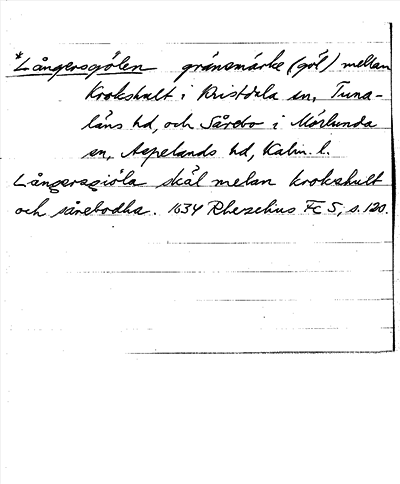 *Långersgölen gränsmärke (göl) mellan
Krokshult i Kristdala sn, Tuna-
läns hd, och Sårebo i Mörlunda
sn, Aspelands hd, Kalm. l.
Långersgiöla skäl melan krokshult
och sårebodha. 1634 Rhezelius Fc 5, s. 120.